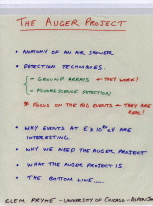 THE AUGER PROJECT
• ANATOMY OF AN AIR SHOWER
• DETECTION TECHNIQUES.
- GROUND ARRAYS ← THEY WORK!
- FLUORESCENCE DETECTION
* FOCUS ON THE BIG EVENTS ← THEY ARE REAL!
• WHY EVENTS AT E > 10²⁰ eV ARE INTERESTING.
• WHY WE NEED THE AUGER PROJECT
• WHAT THE AUGER PROJECT IS
• THE BOTTOM LINE.....
CLEM PRYKE - UNIVERSITY OF CHICAGO - ASPEN